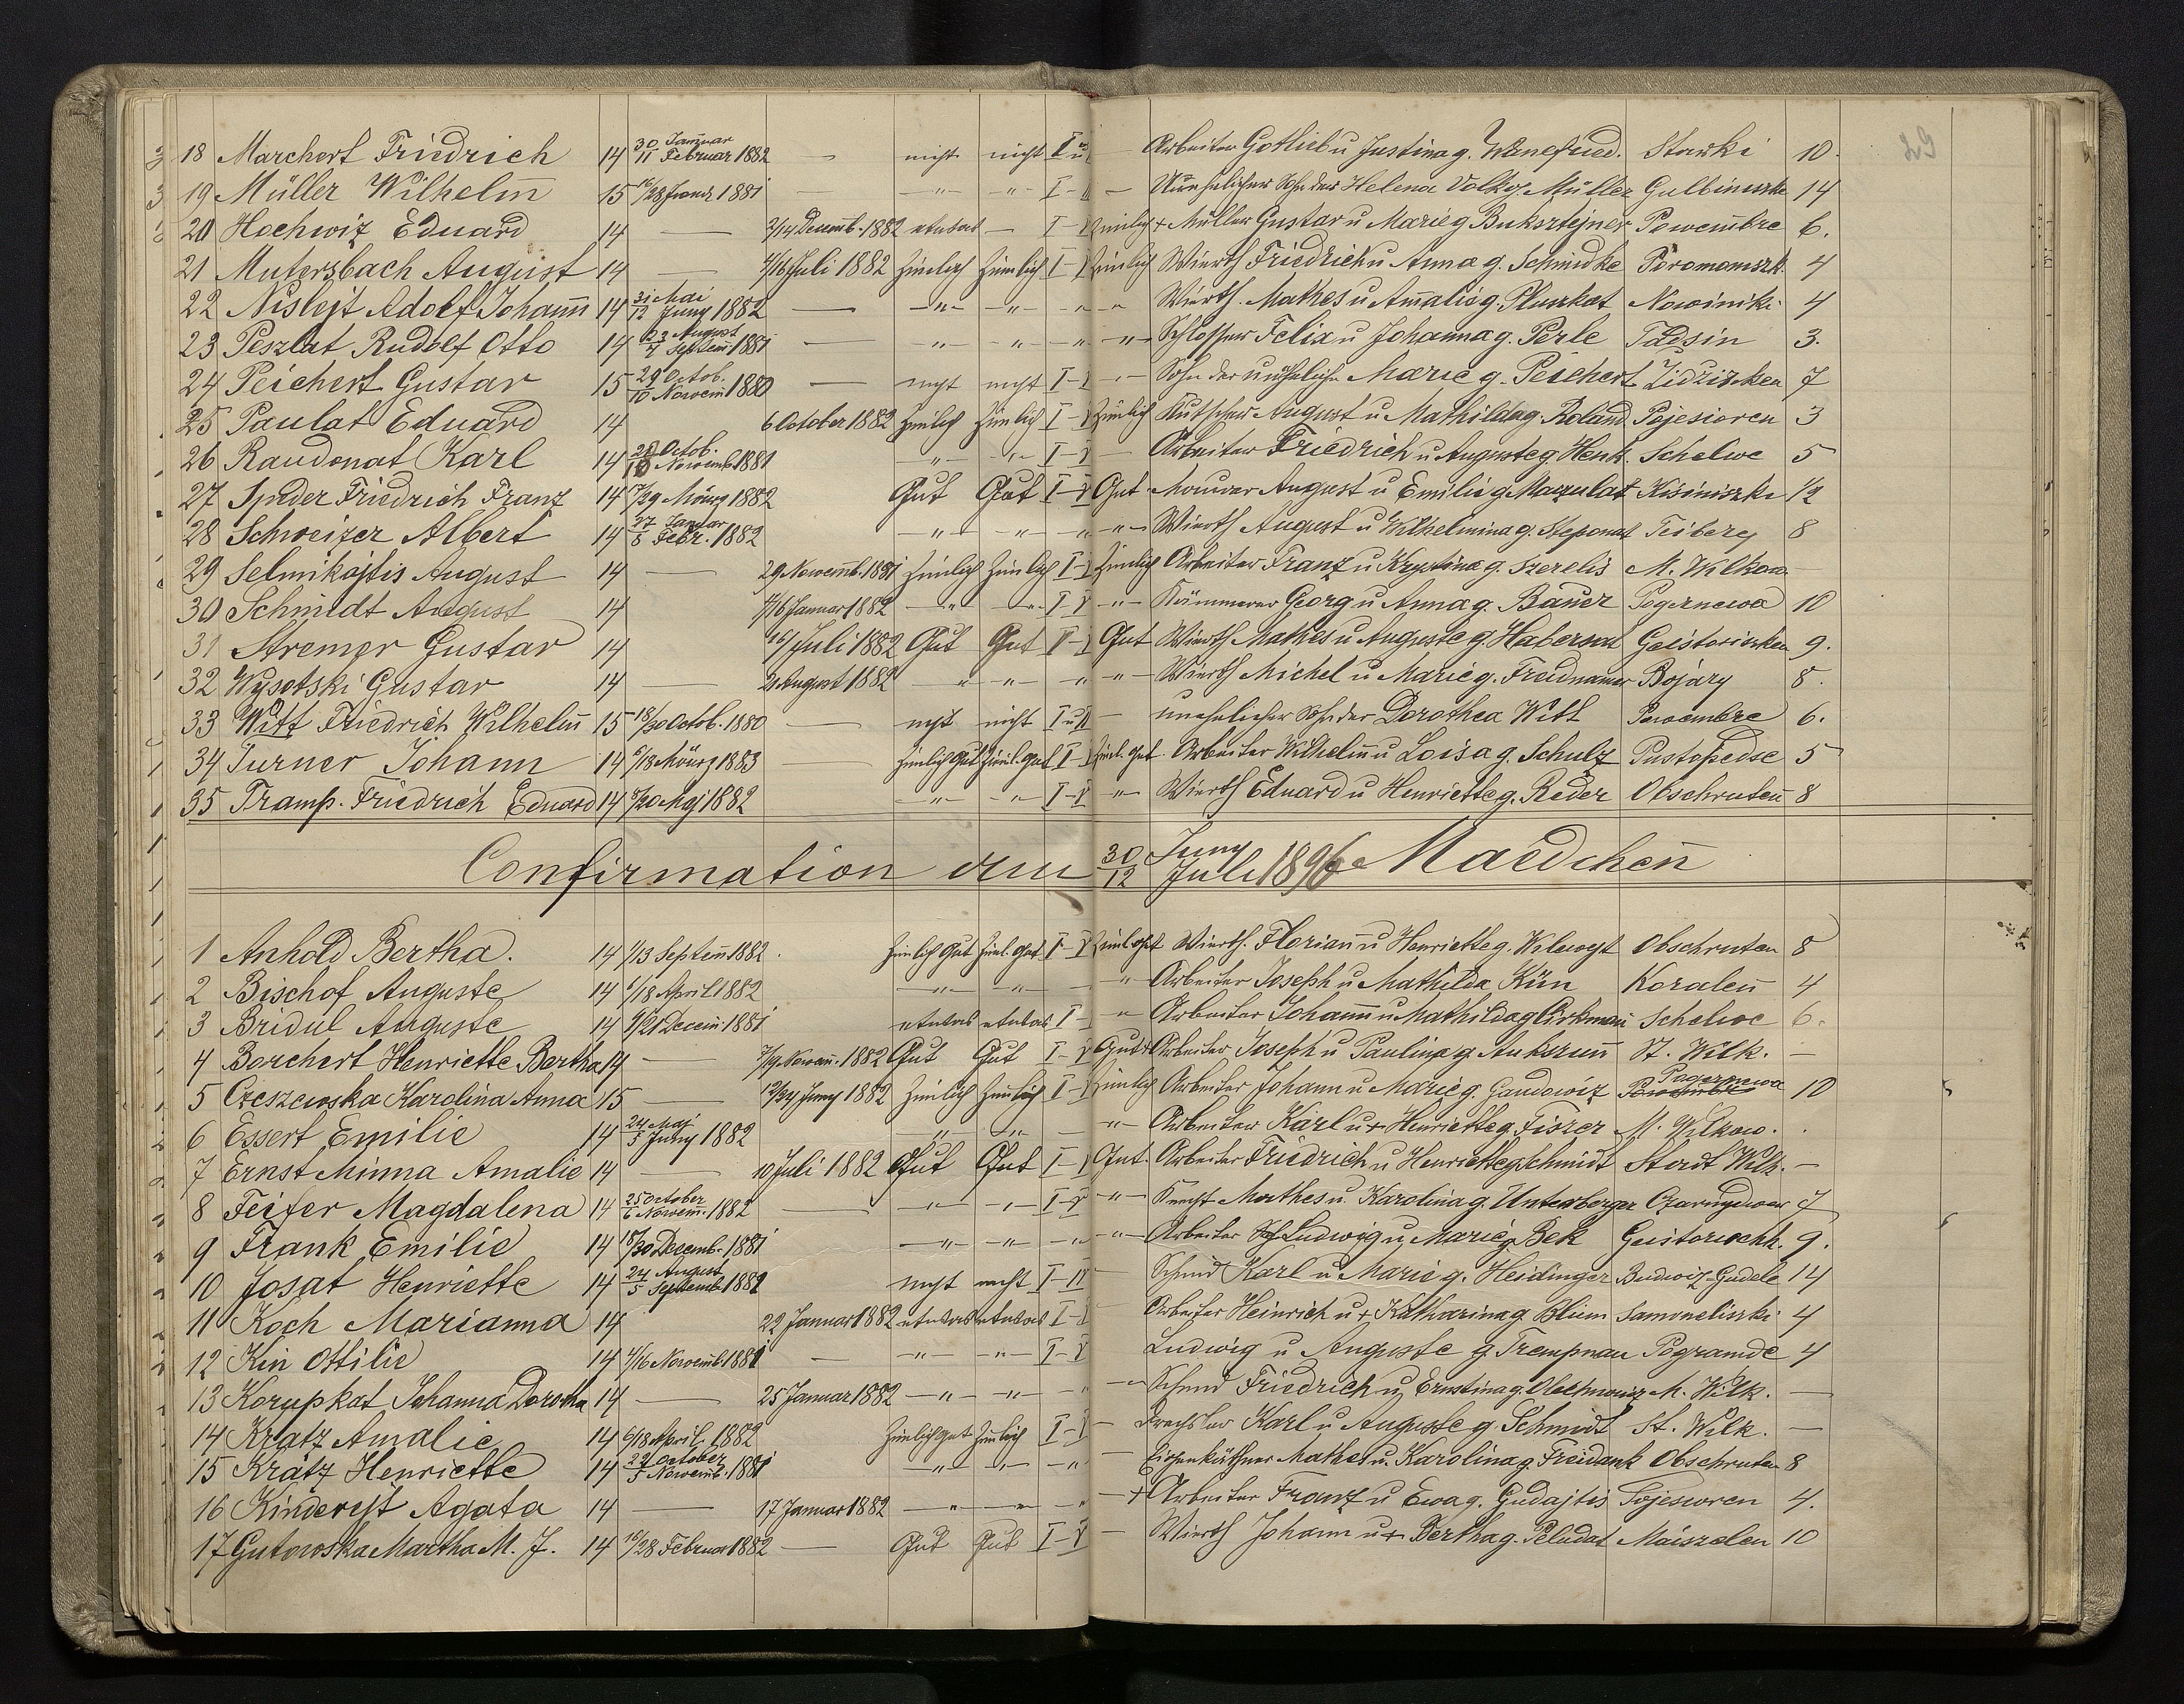 29
18 Marchert Friedrich 14 30 Januar / 11 Februar 1882 — nicht nicht I u Arbeiter Gotlieb u Justina g. Starki 10.
19 Müller Wilhelm̄ 15 16/28 1881 — -"- -"- I-II — Unehelicher Sohn der Helena Volk g. Müller Gulbiniszki 14
20 Hochwiz Eduard 14 — 2/14 Decemb. 1882 etwas — I-V Zimlich + Müller Gustav u Marie g Buksztejner Powembre 6.
21 Mutersbach August 14 — 4/16 Juli 1882 Zimlich Zimlich I-V Zimlich Wierth Friedrich u Anna g. Schmidke 4
22 Nislejt Adolf Johan̄n 14 31 Mai / 12 Juny 1882 — -"- -"- -"- -"- Wierth Mathes u Am̄alie g. Pluszkat Nowiniki 4
23 Peszlat Rudolf Otto 14 23 August / 4 Septem̄ 1881 — -"- -"- -"- -"- Schlosser Felix u Johanna g. Perle Tadsin 3.
24 Peichert Gustav 15 29 Octob. / 10 Novem̄ 1880 — nicht nicht I-V -"- Sohn der unehelichen Marie g. Peichert Zidziszken 7
25 Paulat Eduard 14 6 October 1882 Zimlich Zimlich I-V Zimlich Kutscher August u Mathilda g. Roland Pojesioren 3
26 Raudonat Karl 14 28 Octob. / 10 Novemb 1881 -"- -"- I-V — Arbeiter Friedrich u Auguste g. Henk. Schelwe 5
27 Spader Friedrich Franz 14 17/29 März 1882 Gut Gut I-V Gut Maurer August u Emilie g Mazulat Kisiniszki 12
28 Schweizer Albert 14 27 Januar / 8 Febr. 1882 -"- -"- -"- -"- Wierth August u Wilhelmina g. Steponat Teiberg 8
29 Selmikajtis August 14 — 29 Novem̄b. 1881 Zimlich Zimlich I-V Zimlich Arbeiter Franz u Krystina g. Szerelis M. Wilkow —
30 Schmidt August 14 4/16 Januar 1882 -"- -"- I-V -"- Kämmerer Georg u Anna g. Bauer Pogernewa 10
31 Stremer Gustav 14 Juli 1882 Gut Gut I-V Gut Wierth Mathes u Auguste g. Habersat Geistoriszken 9.
32 Wysotski Gustav 14 — 21 August 1882 -"- -"- -"- -"- Wierth Michel u Marie g. Freidnauer Bojary 8.
33 Witt Friedrich Wilhelm̄ 15 18/30 Octob. 1880 — nicht nicht I u II — unehelicher Sohn der Dorothea Witt Powembre 6.
34 Turner Johann 14 6/18 März 1883 — Zimlich Gut Ziml. gut I-V Ziml. gut Arbeiter Wilhelm̄ u Loisa g. Schulz Pustopedse 5
35 Tramp Friedrich Eduard 14 8/20 Maj 1882 -"- -"- I-V -"- Wierth Eduard u Henriette g. Reder Obschruten̄ 8
Confirmation am 30 Juny / 12 Juli 1896 Maedchen̄
1 Anhold Bertha. 14 1/13 Septem̄ 1882 Zimlich Gut Ziml. Gut I-V Ziml. Gut Wierth. Florian̄ u Henriette g. Wilwoyt Obschruten 8
2 Bischof Auguste 14 6/18 April 1882 -"- -"- — -"- Arbeiter Joseph u Mathilda Kün Koralen̄ 4
3 Bridul Auguste 14 9/21 Decem̄ 1881 etwas etwas I- -"- Arbeiter Johan̄n u Mathilda g Schelwe 6.
4 Borchert Henriette Bertha 14 — 7/19 Novem̄. 1882 Gut Gut I-V Gut Arbeiter Joseph u Paulina g Auksztin̄ St. Wilk. —
5 Czeszewska Karolina Anna 15 — 12/24 Juny 1882 Zimlich Zimlich I-V Zimlich Arbeiter Johann u Marie g. Gaudowiz Powembre Pogernewa 10
6 Essert Emilie 14 24 Maj / 5 Juny 1882 -"- -"- — -"- Arbeiter Karl u + Henriette g. Fiszer M. Wilkow.
7 Ernst Minna Amalie 14 — 10 Juli 1882 Gut Gut I-V Gut. Arbeiter Friedrich u Henriette g Schmidt Stadt Wilk. —
8 Feifer Magdalena 14 25 October / 6 Novem̄. 1882 — -"- -"- I-V -"- Knecht Mathes u. Karolina g. Unterberger Czarnydwor 7
9 Frank Emilie 14 18/30 Decemb. 1881 -"- -"- -"- -"- Arbeiter Ludwig u Marie g Bek Geistorischk. 9.
10 Josat Henriette 14 24 August / 5 Septemb. 1882 nicht nicht I-II Schmid Karl u Marie g. Heidinger Budwiz-Gudele 14
11 Koch Marianna 14 22 Januar 1882 etwas etwas I-V Arbeiter Heinrich u + Katharina g. Blum Samoneliszki 4
12 Kin Ottilie 14 4/16 Novem̄b. 1881 — -"- -"- I-V Ludwig u Auguste g. Trempnau Pogramde 4
13 Korupkat Johanna Dorothea 14 — 25 Januar 1882 -"- -"- -"- -"- Schmid Friedrich u Ernstina g. M. Wilk. —
14 Kratz Amalie 14 6/18 April 1882 Zimlich gut Zimlich I-V — Drechsler Karl u Auguste g. Schmidt St. Wilk. —
15 Krätz Henriette 14 24 October / 5 Novemb. 1881 -"- -"- -"- — Eigenkäthner Mathes u. Karolina g. Freidank Obschruten 8
16 Kinderejt Agata 14 — 17 Januar 1882 -"- -"- -"- — + Arbeiter Franz u Ewa g. Gudajtis Pojesioren 4.
17 Gutowska Martha M. J. 14 16/28 Februar 1882 — Gut Gut I-V — Wierth Johann u + Bertha g. Peludat Maiszelen 10